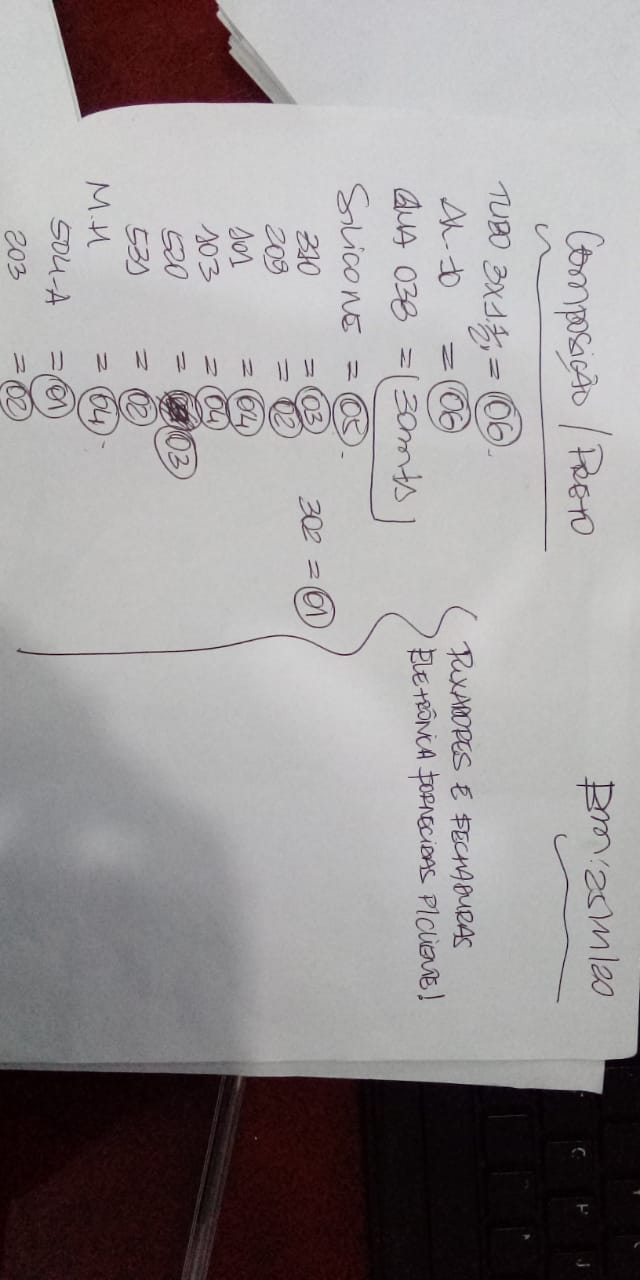 Composição / Preto
Em: 25/11/20
TUBO 3x1.½" = 06.
AL-D = 06
GUA 038 = 30mts
Silicone = 05.
310 = 03
302 = 01
209 = 02
101 = 04
103 = 04
520 = 03
531 = 02
M.H = 04.
504-A = 01
203 = 02
PUXADORES E FECHADURAS
ELETRÔNICA FORNECIDAS P/CLIENTE!